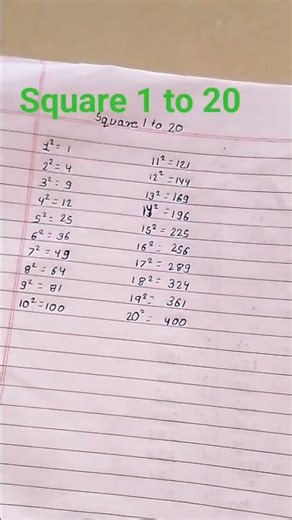 Square 1 to 20
Square 1 to 20
1² = 1
2² = 4
3² = 9
4² = 12
5² = 25
6² = 36
7² = 49
8² = 64
9² = 81
10² = 100
11² = 121
12² = 144
13² = 169
14² = 196
15² = 225
16² = 256
17² = 289
18² = 324
19² = 361
20² = 400